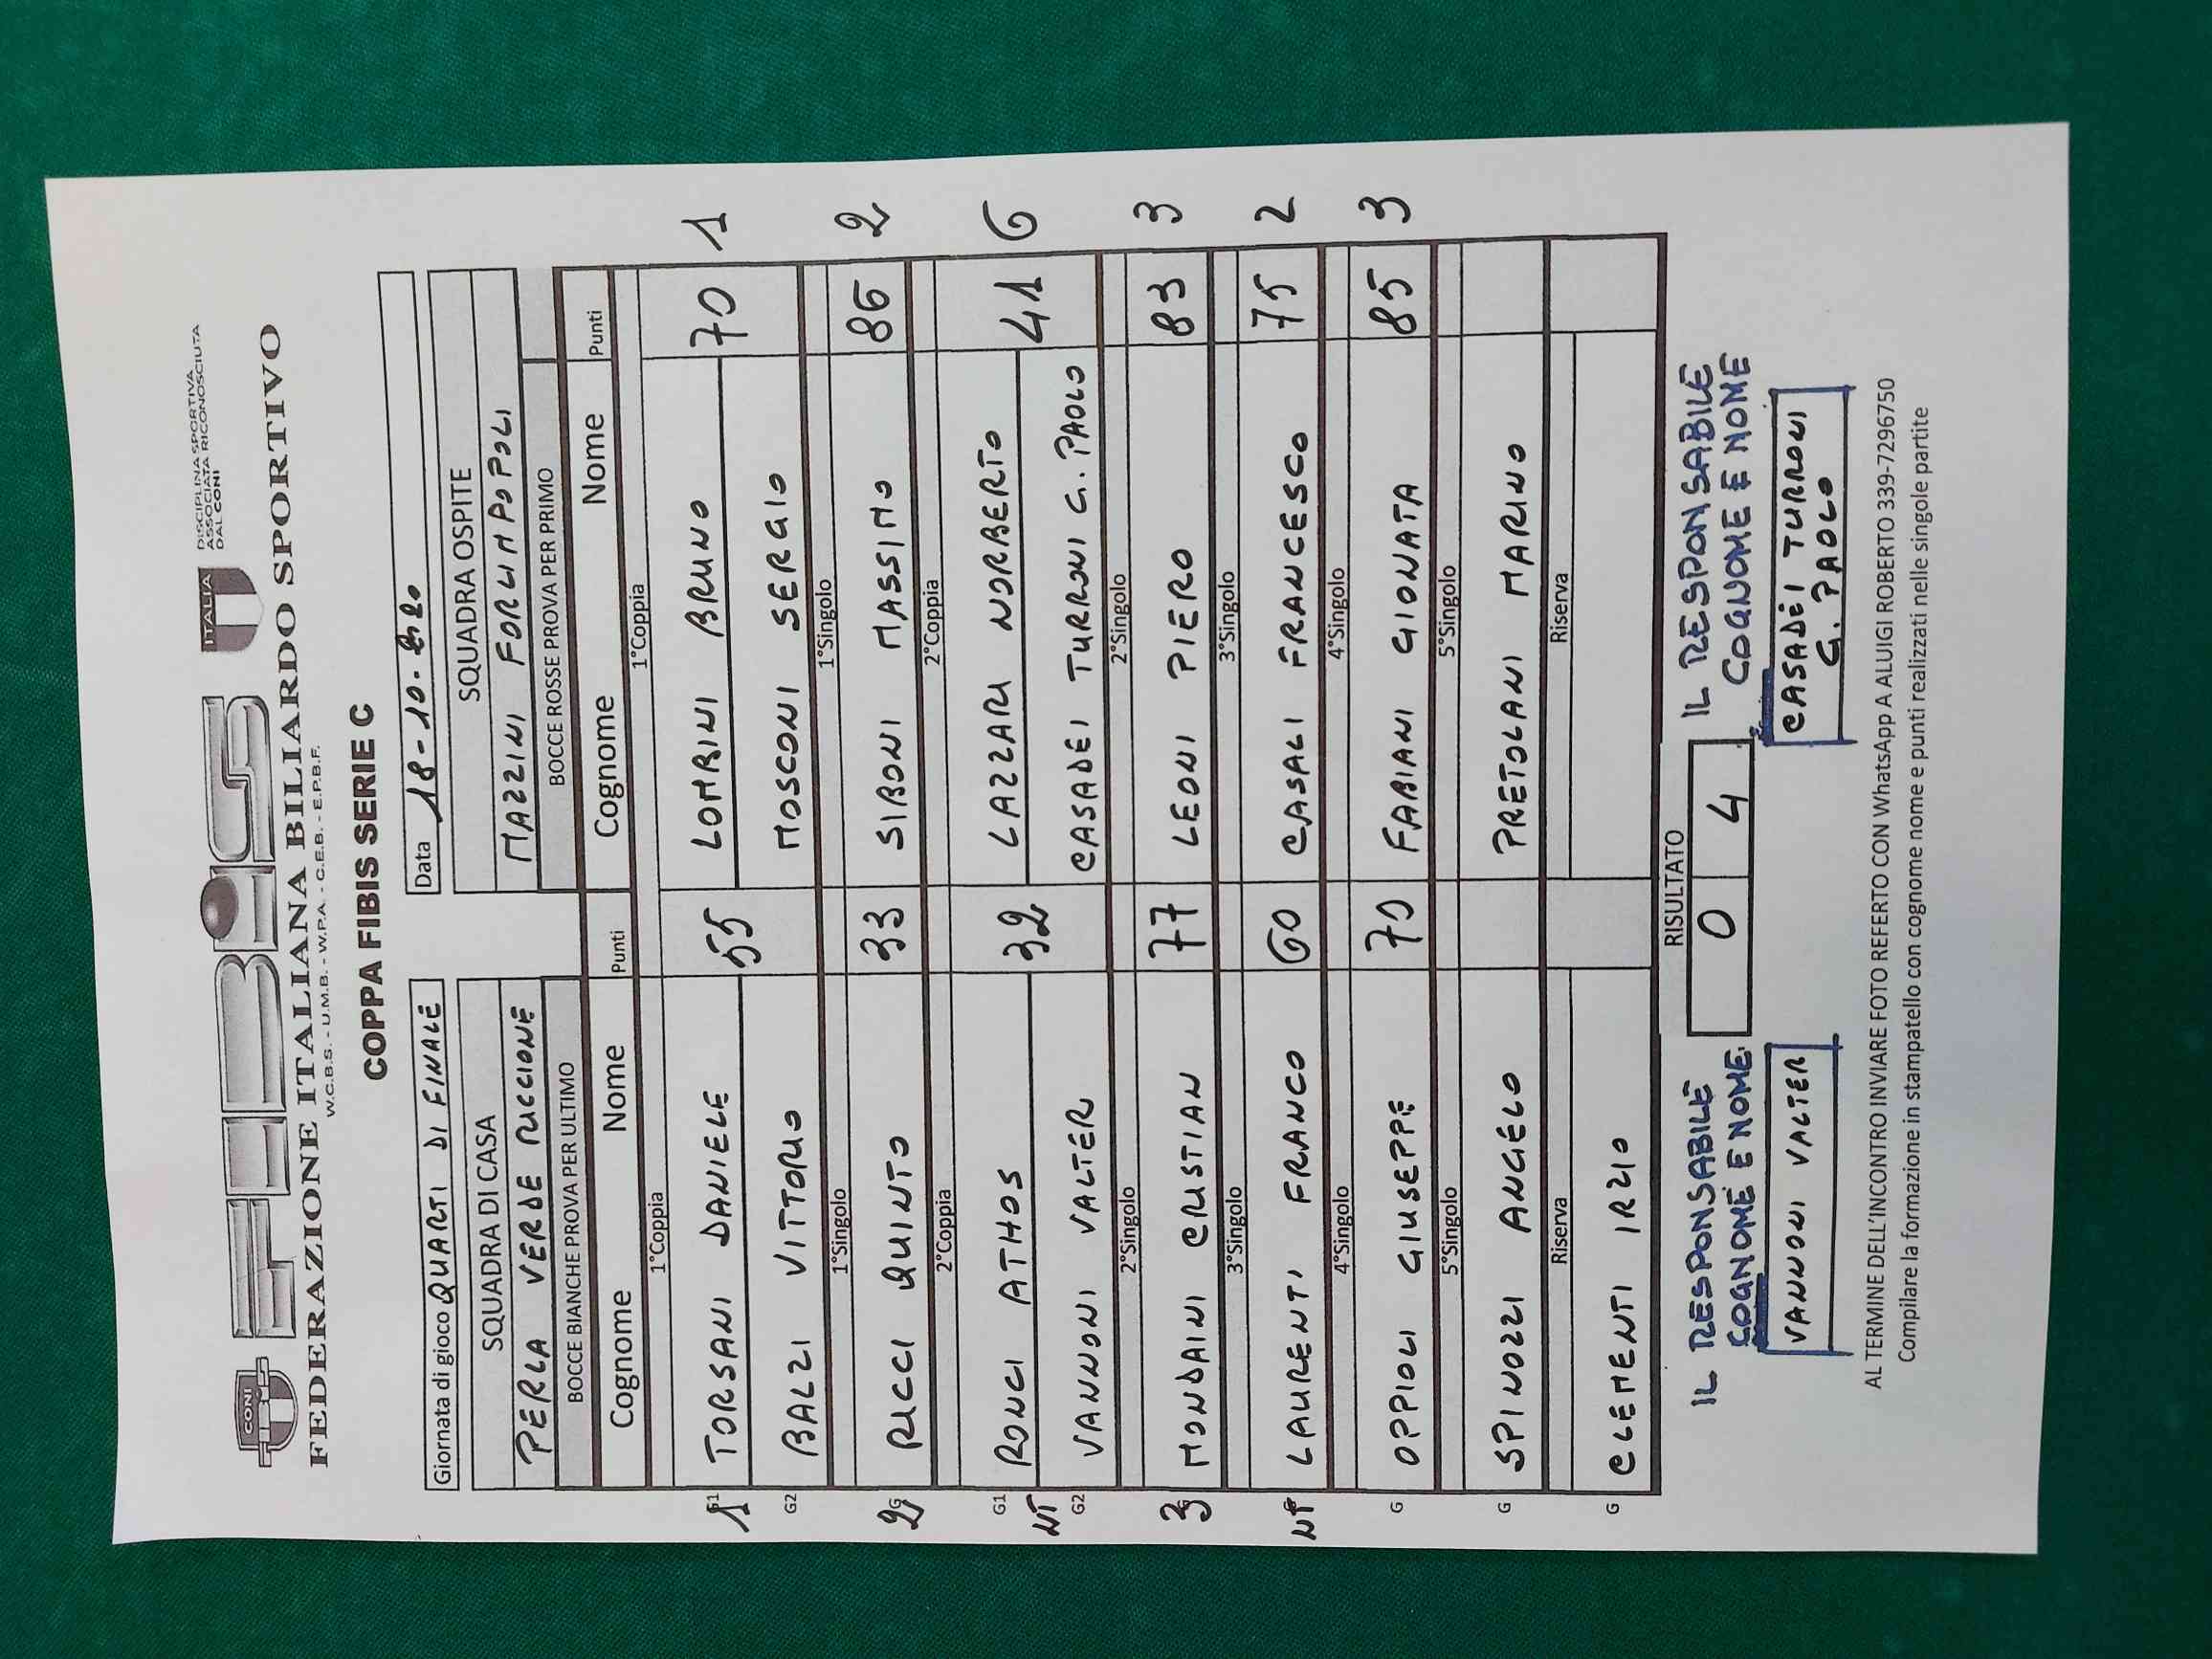 CONI
FIBiS
ITALIA
DISCIPLINA SPORTIVA
ASSOCIATA RICONOSCIUTA
DAL CONI
FEDERAZIONE ITALIANA BILIARDO SPORTIVO
W.C.B.S. - U.M.B. - W.P.A. - C.E.B. - E.P.B.F.
COPPA FIBIS SERIE C
Giornata di gioco QUARTI DI FINALE Data 18-10-2020
SQUADRA DI CASA SQUADRA OSPITE
PERLA VERDE RICCIONE MAZZINI FORLIMPOPOLI
BOCCE BIANCHE PROVA PER ULTIMO BOCCE ROSSE PROVA PER PRIMO
Cognome Nome Punti Cognome Nome Punti
1°Coppia 1°Coppia
1 G1 TORSANI DANIELE 55 LOMBINI BRUNO 70 1
G2 BALZI VITTORIO MOSCONI SERGIO
1°Singolo 1°Singolo
2 G RICCI QUINTO 33 SIBONI MASSIMO 86 2
2°Coppia 2°Coppia
G1 RONCI ATHOS 32 LAZZARI NORBERTO 41 6
NT
G2 VANNONI VALTER CASADEI TURRONI G. PAOLO
2°Singolo 2°Singolo
3 G MONDAINI CRISTIAN 77 LEONI PIERO 83 3
3°Singolo 3°Singolo
NT LAURENTI FRANCO 60 CASALI FRANCESCO 75 2
4°Singolo 4°Singolo
G OPPIOLI GIUSEPPE 70 FABIANI GIONATA 85 3
5°Singolo 5°Singolo
G SPINOZZI ANGELO PRETOLANI MARINO
Riserva Riserva
G CLEMENTI IRZIO
RISULTATO
0 4
IL RESPONSABILE IL RESPONSABILE
COGNOME E NOME. COGNOME E NOME
VANNONI VALTER CASADEI TURRONI
G. PAOLO
AL TERMINE DELL'INCONTRO INVIARE FOTO REFERTO CON WhatsApp A ALUIGI ROBERTO 339-7296750
Compilare la formazione in stampatello con cognome nome e punti realizzati nelle singole partite